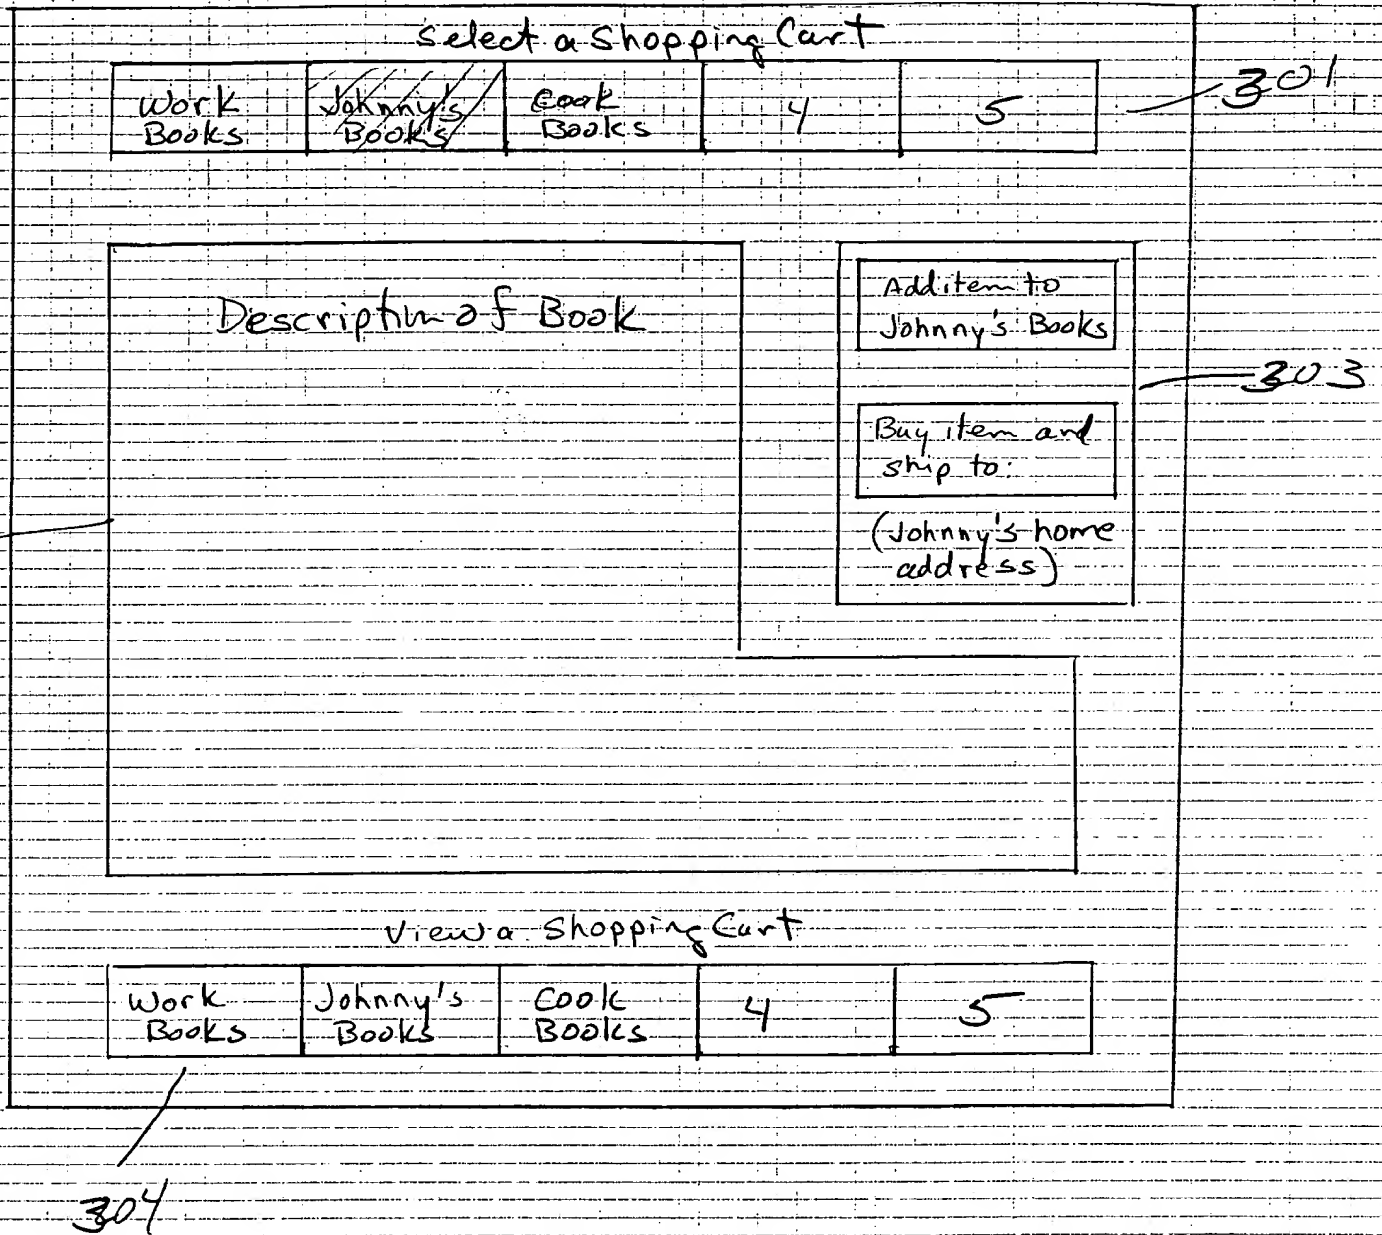 Select a Shopping Cart
Work
Books
Johnny's
Books
Cook
Books
4
5
301
Description of Book
Add item to
Johnny's Books
303
Buy item and
ship to:
(Johnny's home
address)
View a Shopping Cart
Work
Books
Johnny's
Books
Cook
Books
4
5
304